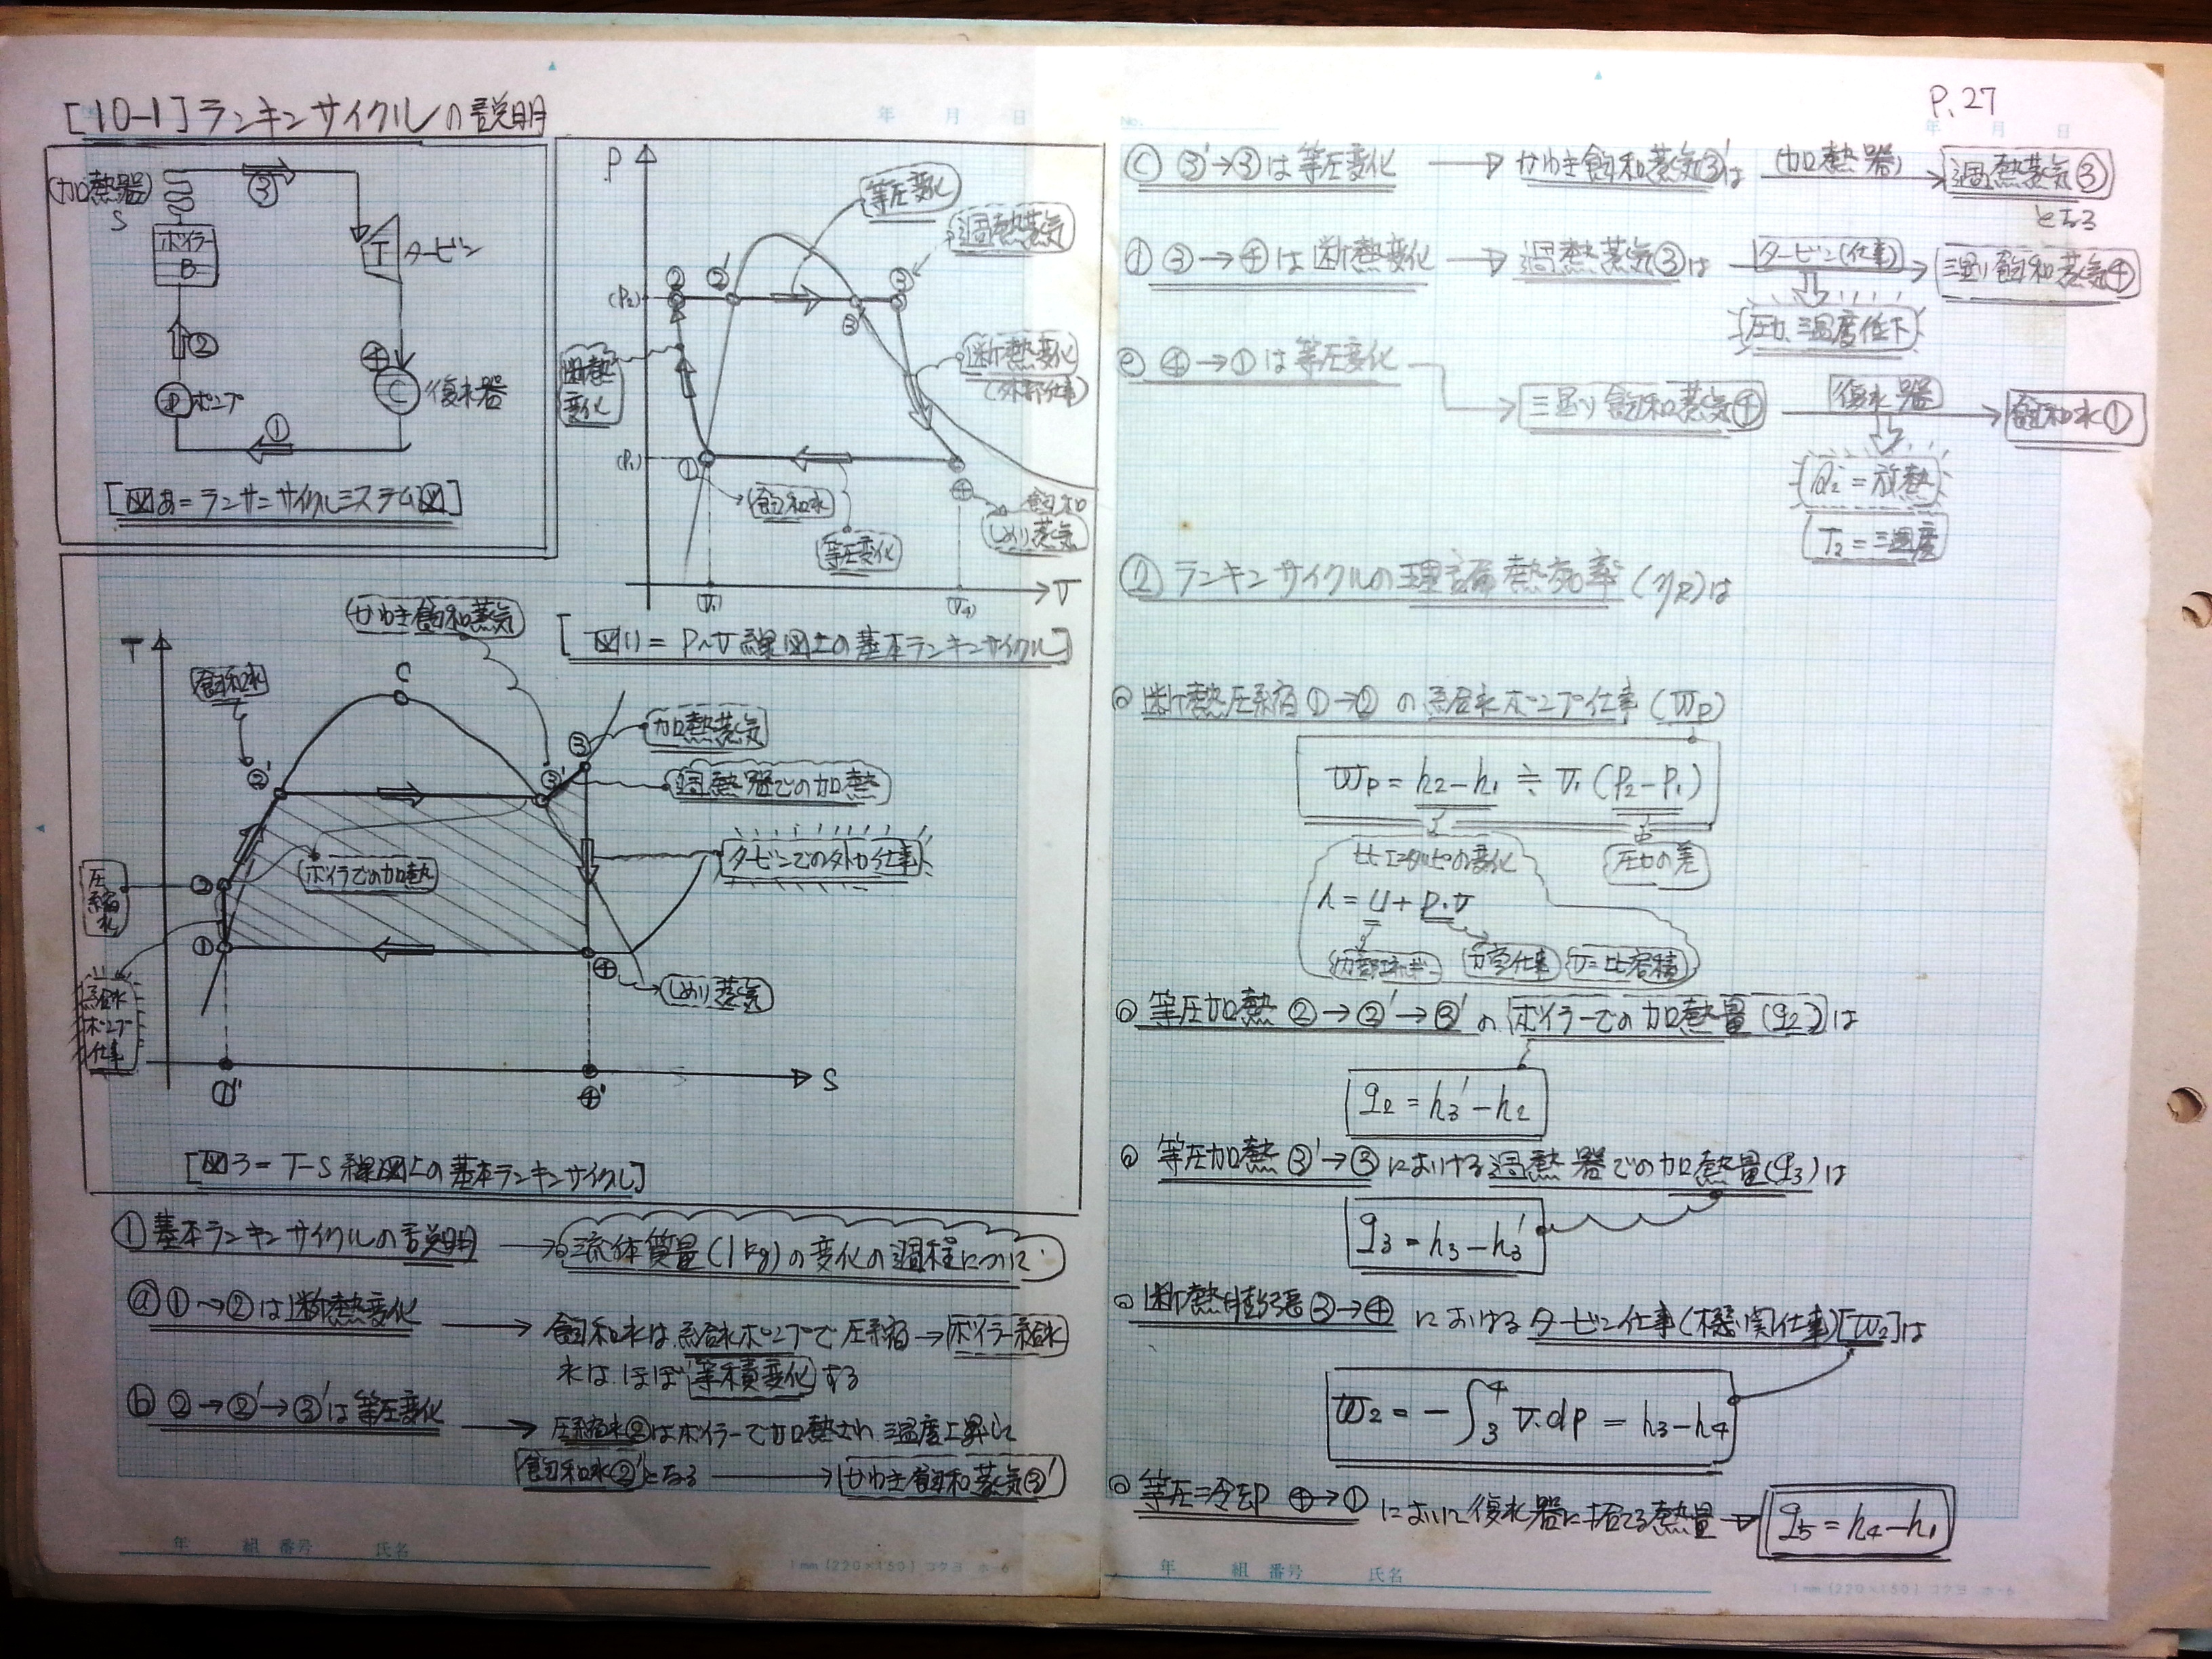 P.27
[10-1]ランキンサイクルの説明
(加熱器)
S
③
ボイラー
B
T タービン
②
④
P ポンプ
C 復水器
①
[図あ=ランサニサイクルシステム図]
P
等圧変化
過熱蒸気
② ②' ③
(P₂)
③'
断熱変化
断熱変化
(外部仕事)
(P₁) ①
飽和水
④
飽和
しめり蒸気
等圧変化
(v₁) (v₄) v
[図い=P~v線図上の基本ランキンサイクル]
かわき飽和蒸気
T
飽和水
C
③ 加熱蒸気
②' ③' 過熱器での加熱
タービンでの外力仕事
ボイラでの加熱
圧縮水
②
①
④ しめり蒸気
給水ポンプ仕事
①' ④' S
[図う=T-S線図上の基本ランキンサイクル]
① 基本ランキンサイクルの説明 → 流体質量(1kg)の変化の過程について
ⓐ ①→②は断熱変化 → 飽和水は給水ポンプで圧縮→ボイラー給水
水はほぼ等積変化する
ⓑ ②→②'→③'は等圧変化 → 圧縮水②はボイラーで加熱され温度上昇して
飽和水②'となる → かわき飽和蒸気③'
ⓒ ③'→③は等圧変化 → かわき飽和蒸気③'は (加熱器) → 過熱蒸気③
となる
ⓓ ③→④は断熱変化 → 過熱蒸気③は タービン(仕事) → 湿り飽和蒸気④
圧力、温度低下
ⓔ ④→①は等圧変化
湿り飽和蒸気④ 復水器 → 飽和水①
Q₂=放熱
T₂=温度
② ランキンサイクルの理論熱効率(ηR)は
断熱圧縮①→②の給水ポンプ仕事(Wp)
Wp=h₂-h₁≒v₁(P₂-P₁)
比エンタルピの変化 圧力の差
h=u+P・v
v=比容積
等圧加熱②→②'→③'のボイラーでの加熱量(q₂)は
q₂=h₃'-h₂
等圧加熱③'→③における過熱器での加熱量(q₃)は
q₃=h₃-h₃'
断熱膨張③→④におけるタービン仕事(機関仕事)[W₂]は
W₂=-∫₃⁴v.dp=h₃-h₄
等圧冷却④→①において復水器に捨てる熱量→ q₅=h₄-h₁
年 組 番号 氏名
1mm(220×150) コクヨ ホ-6
年 組 番号 氏名
1mm(220×150) コクヨ ホ-6